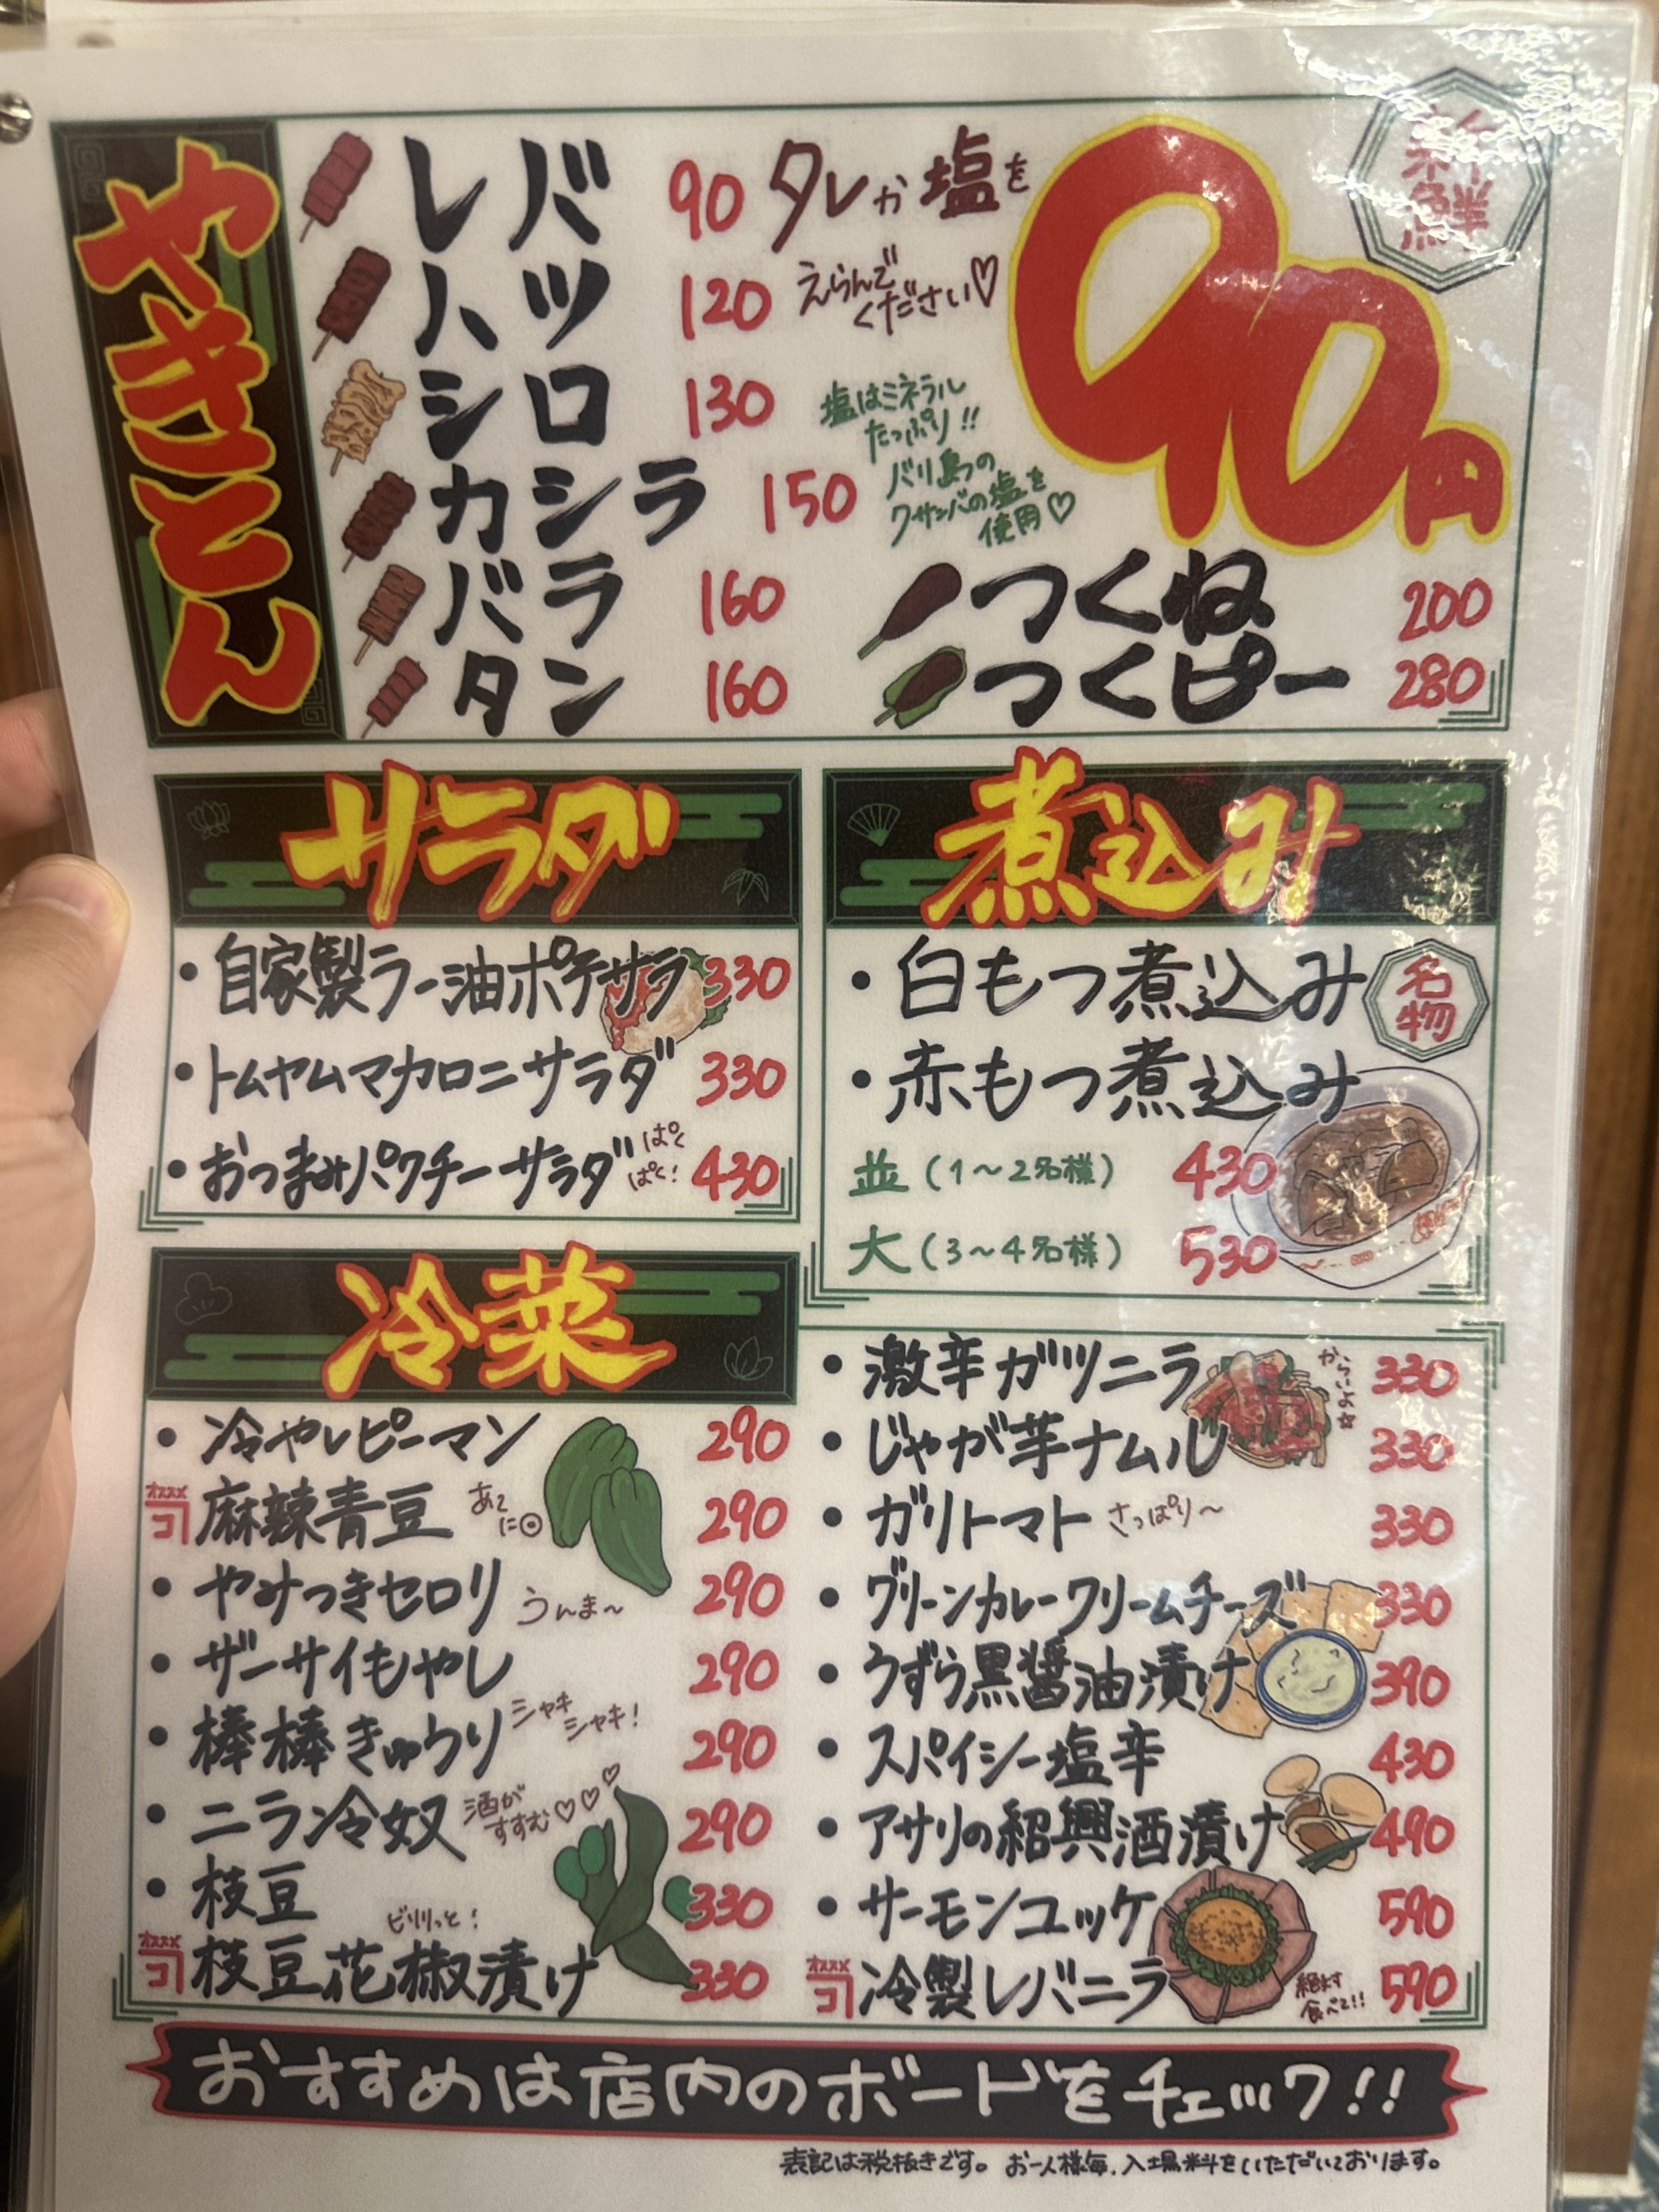 新鮮
やきとん
レバ 90
ハツ 120
シロ 130
カシラ 150
バラ 160
タン 160
タレか塩を
えらんで
ください♡
90円
塩はミネラル
たっぷり!!
バリ島の
クサンバの塩を
使用♡
つくね 200
つくピー 280
サラダ
・自家製ラー油ポテサラ 330
・トムヤムマカロニサラダ 330
・おつまみパクチーサラダ ぱくぱく! 430
煮込み
・白もつ煮込み
名物
・赤もつ煮込み
並(1〜2名様) 430
大(3〜4名様) 530
冷菜
・冷やしピーマン 290
オススメ 麻辣青豆 あとに◎ 290
・やみつきセロリ うんま〜 290
・ザーサイもやし 290
・棒棒きゅうり シャキシャキ! 290
・ニラ冷奴 酒がすすむ♡♡♡ 290
・枝豆 330
オススメ 枝豆花椒漬け ビリリっと! 330
・激辛ガツニラ からいよ☆ 330
・じゃが芋ナムル 330
・ガリトマト さっぱり〜 330
・グリーンカレークリームチーズ 330
・うずら黒醤油漬け 390
・スパイシー塩辛 430
・アサリの紹興酒漬け 490
・サーモンユッケ 590
オススメ 冷製レバニラ 絶対食べて!! 590
おすすめは店内のボードをチェック!!
表記は税抜きです。お一人様毎、入場料をいただいております。